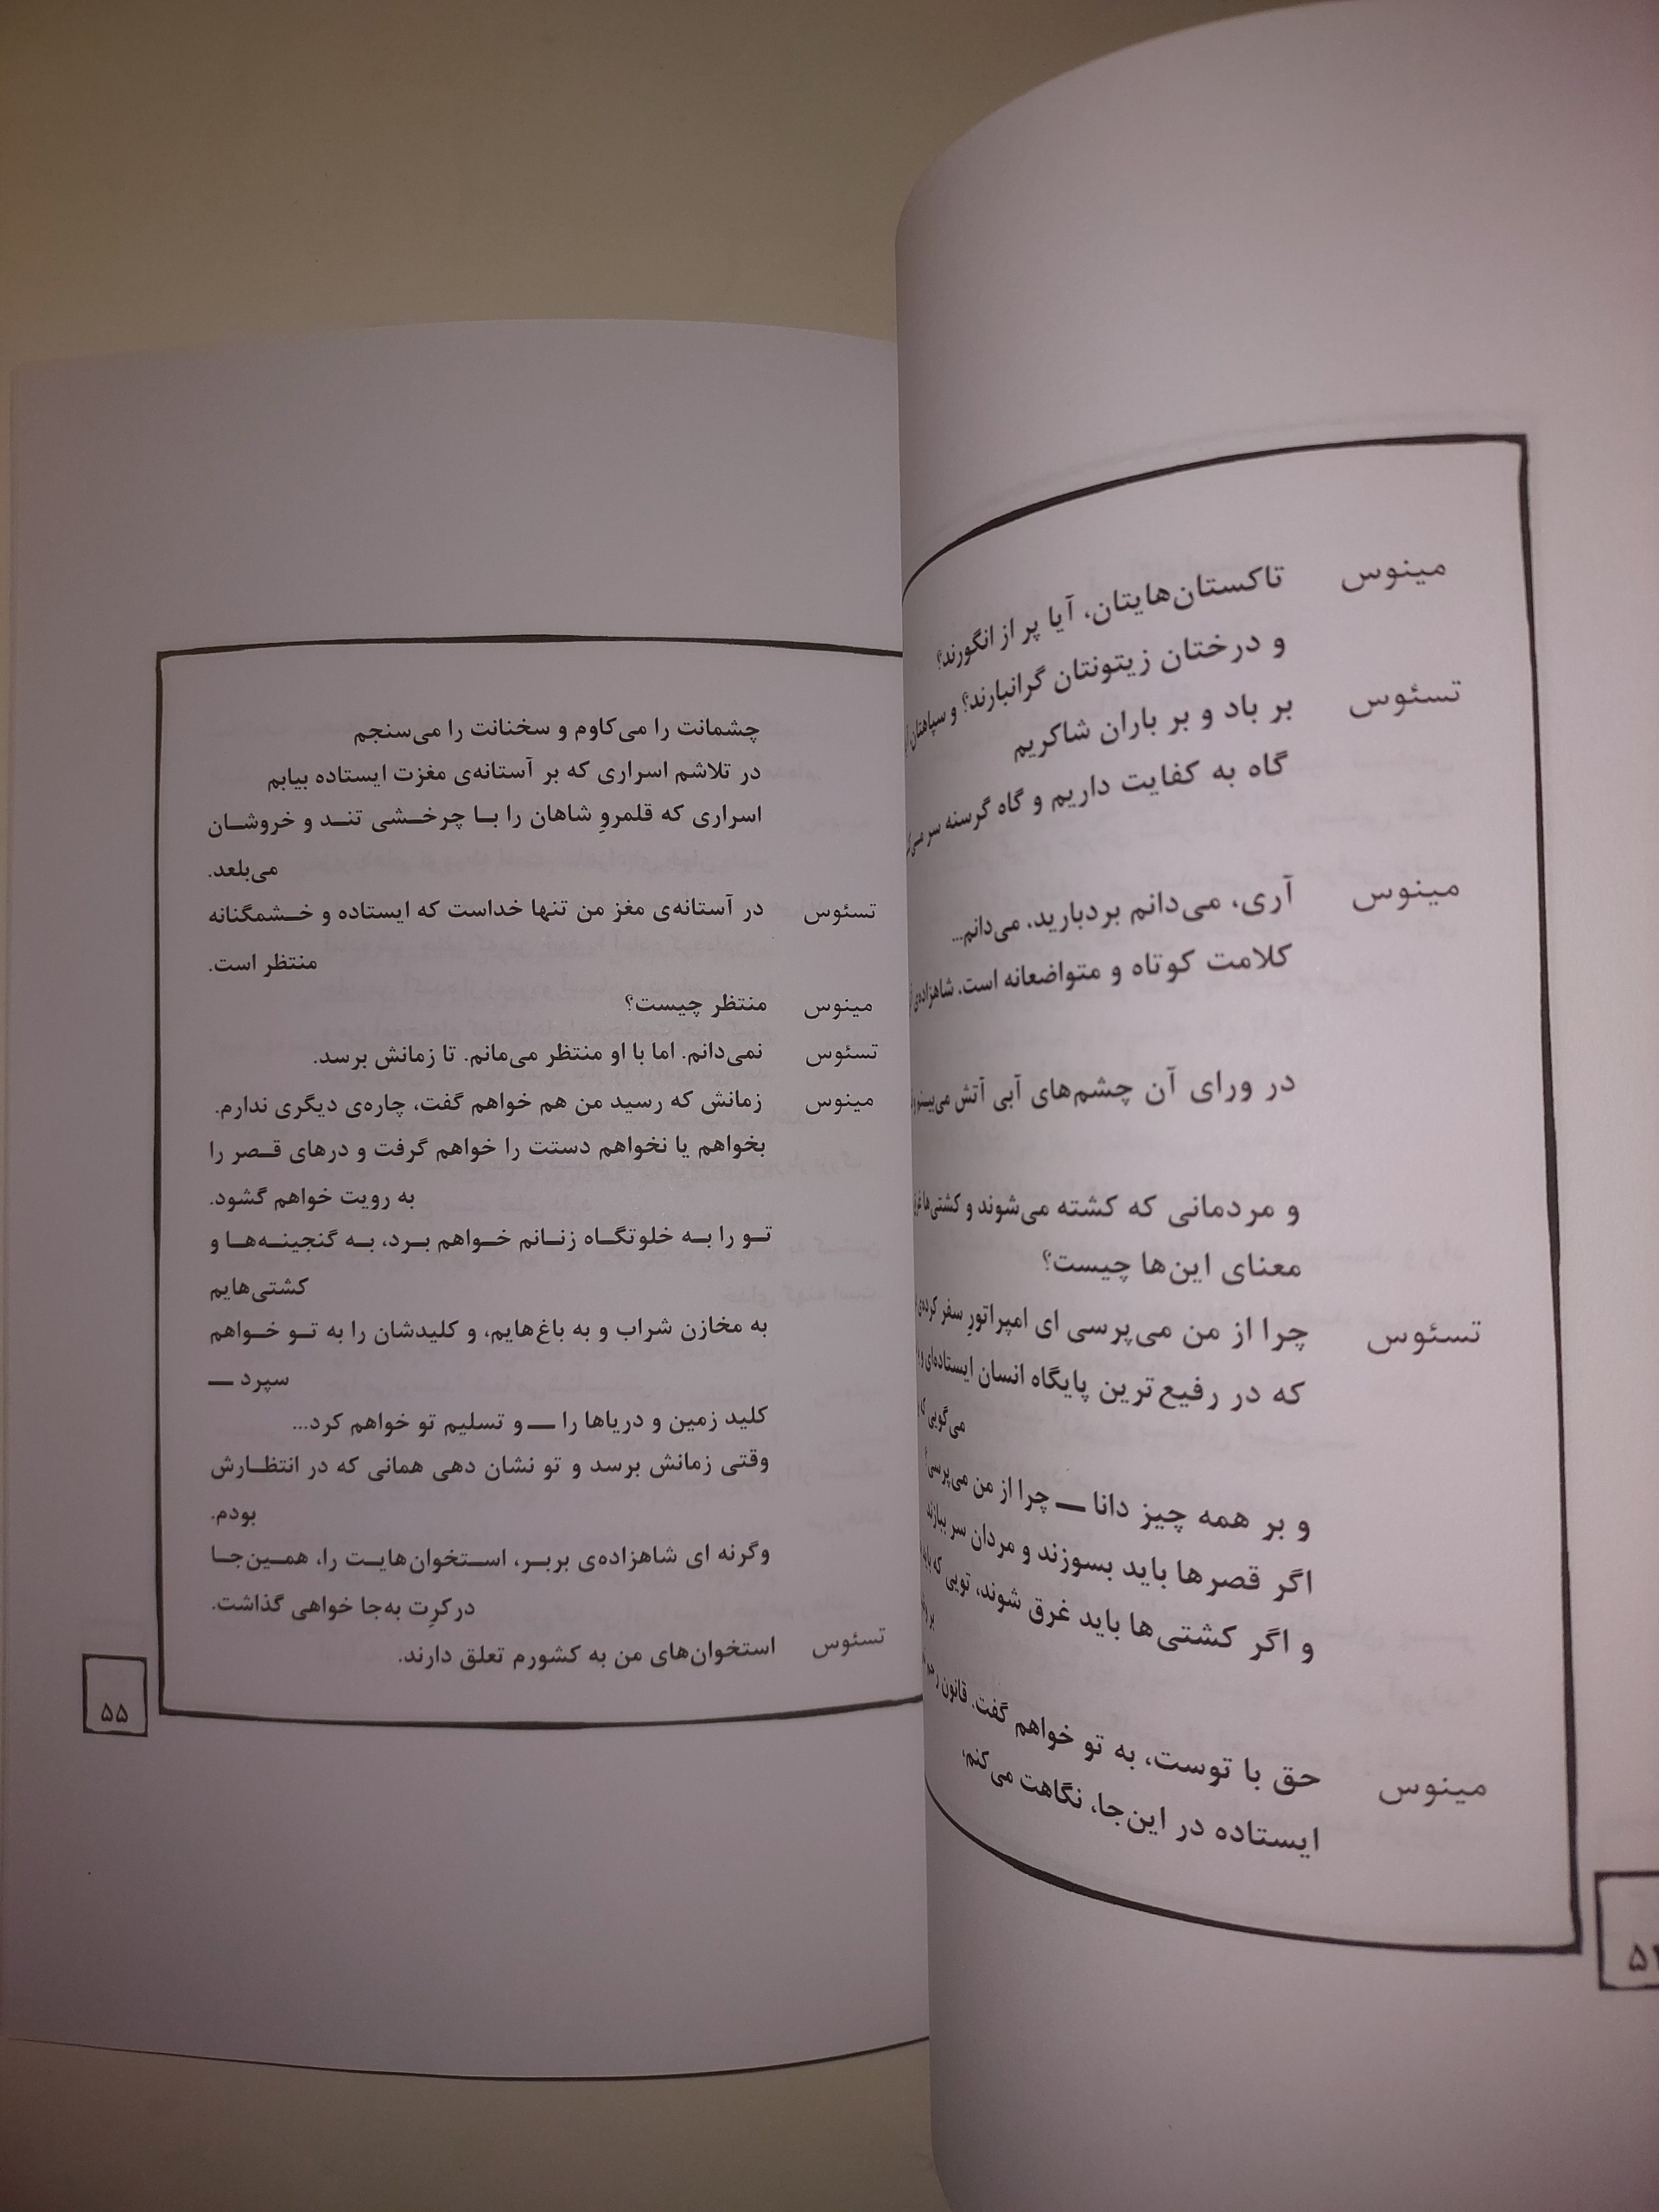 مینوس تاکستان‌هایتان، آیا پر از انگورند؟
و درختان زیتونتان گرانبارند؟ و سپاهتان
تسئوس بر باد و بر باران شاکریم
گاه به کفایت داریم و گاه گرسنه سر
مینوس آری، می‌دانم بردبارید، می‌دانم...
کلامت کوتاه و متواضعانه است. شاهزاده‌ی
در ورای آن چشم‌های آبی آتش می‌بینم
و مردمانی که کشته می‌شوند و کشتی‌ها
معنای این‌ها چیست؟
تسئوس چرا از من می‌پرسی ای امپراتورِ سفر کرده‌ی
که در رفیع‌ترین پایگاه انسان ایستاده‌ای و
می‌گویی
و بر همه چیز دانا ــ چرا از من می‌پرسی؟
اگر قصرها باید بسوزند و مردان سر ببازند
و اگر کشتی‌ها باید غرق شوند، تویی که باید
بر
مینوس حق با توست، به تو خواهم گفت. قانون
ایستاده در این‌جا، نگاهت می‌کنم،
چشمانت را می‌کاوم و سخنانت را می‌سنجم
در تلاشم اسراری که بر آستانه‌ی مغزت ایستاده بیابم
اسراری که قلمروِ شاهان را بـا چرخـشی تنـد و خروشـان
می‌بلعد.
تسئوس در آستانه‌ی مغز من تنها خداست که ایستاده و خـشمگنانه
منتظر است.
مینوس منتظر چیست؟
تسئوس نمی‌دانم. اما با او منتظر می‌مانم. تا زمانش برسد.
مینوس زمانش که رسید من هم خواهم گفت، چاره‌ی دیگری ندارم.
بخواهم یا نخواهم دستت را خواهم گرفت و درهای قـصر را
به رویت خواهم گشود.
تـو را بـه خلوتگـاه زنـانم خـواهم بـرد، بـه گنجینـه‌هـا و
کشتی‌هایم
به مخازن شراب و به باغ‌هایم، و کلیدشان را به تـو خـواهم
سپرد ــ
کلید زمین و دریاها را ــ و تسلیم تو خواهم کرد...
وقتی زمانش برسد و تو نشان دهی همانی که در انتظـارش
بودم.
وگرنه ای شاهزاده‌ی بربـر، اسـتخوان‌هایـت را، همـین‌جـا
درکرِت به‌جا خواهی گذاشت.
تسئوس استخوان‌های من به کشورم تعلق دارند.
۵۵